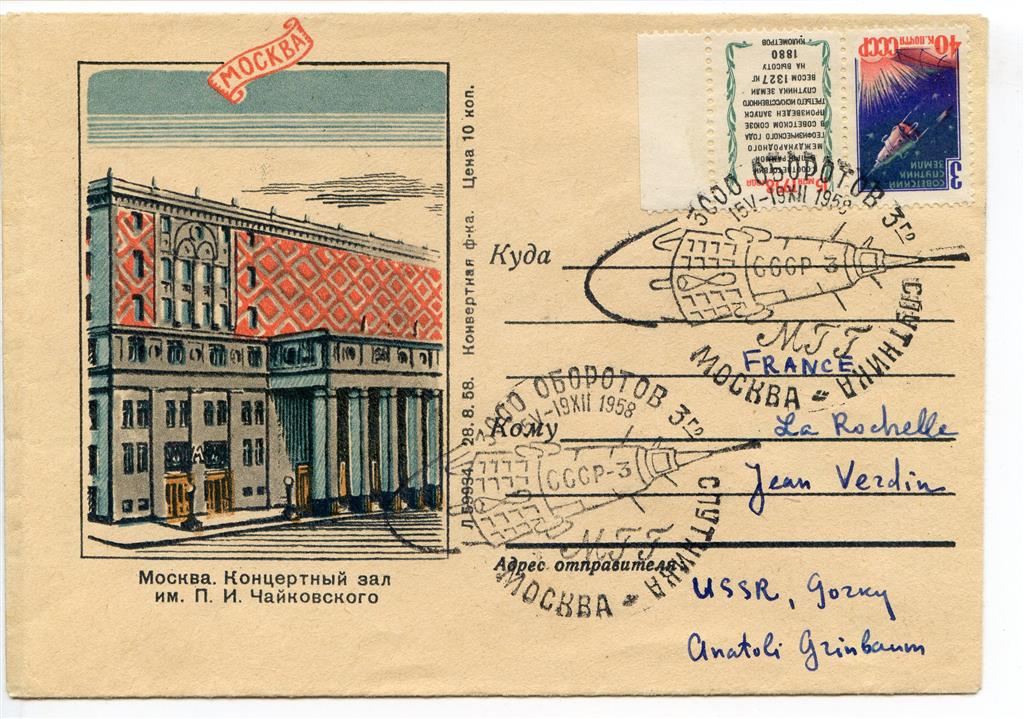 МОСКВА
Цена 10 коп.
Конвертная ф-ка.
28. 8. 58.
Л 59934
Москва. Концертный зал
им. П. И. Чайковского
40 К. ПОЧТА СССР
3
СОВЕТСКИЙ
СПУТНИК
ЗЕМЛИ
МЕЖДУНАРОДНОГО
ГЕОФИЗИЧЕСКОГО ГОДА
В СОВЕТСКОМ СОЮЗЕ
ПРОИЗВЕДЕН ЗАПУСК
ТРЕТЬЕГО ИСКУССТВЕННОГО
СПУТНИКА ЗЕМЛИ
ВЕСОМ 1327 КГ
НА ВЫСОТУ
1880
КИЛОМЕТРОВ
3000 ОБОРОТОВ 3го СПУТНИКА
15V-19XII 1958
СССР-3
МГГ
МОСКВА
Куда
FRANCE
Кому
La Rochelle
Jean Verdin
3000 ОБОРОТОВ 3го СПУТНИКА
15V-19XII 1958
СССР-3
МГГ
МОСКВА
Адрес отправителя:
USSR, Gorky
Anatoli Grinbaum